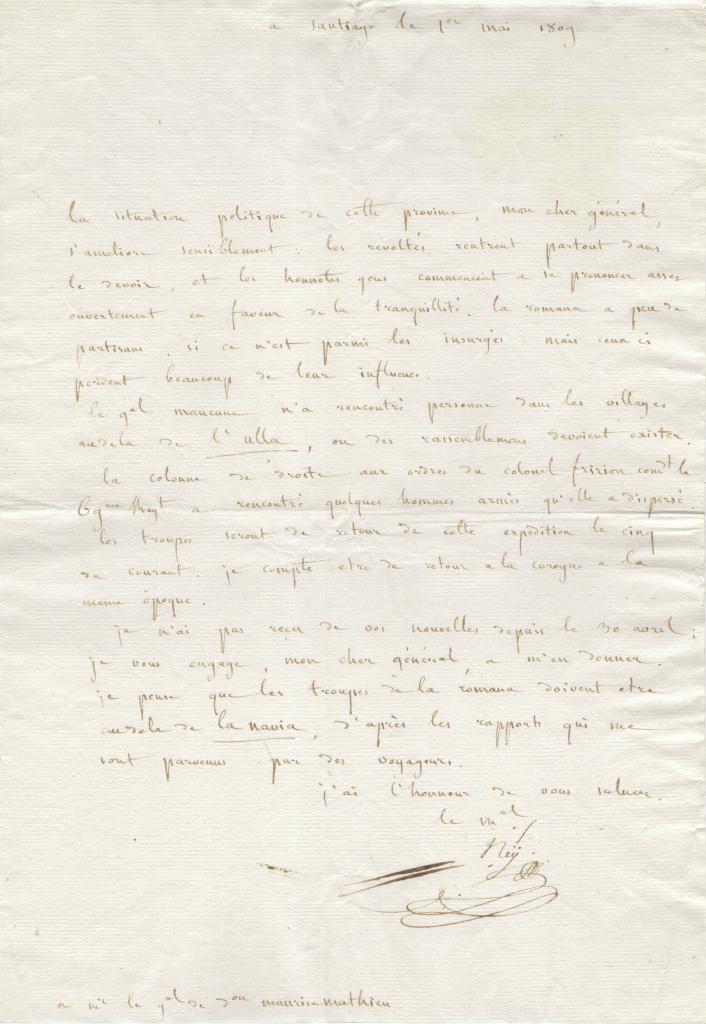 a santiago le 1er mai 1809
la situation politique de cette province, mon cher général,
s'améliore sensiblement: les révoltés rentrent partout dans
le devoir, et les honnêtes gens commencent a se prononcer assés
ouvertement en faveur de la tranquillité. la romana a peu de
partisans, si ce n'est parmi les insurgés: mais ceux ci
perdent beaucoup de leur influence.
le gal maucune n'a rencontré personne dans les villages
audela de l'ulla, ou des rassemblemens devoient exister.
la colonne de droite aux ordres du colonel fririon comdt le
69eme Regt a rencontré quelques hommes armés qu'elle a dispersé.
les troupes seront de retour de cette expédition le cinq
du courant. je compte etre de retour a la corogne a la
meme époque.
je n'ai pas reçu de vos nouvelles depuis le 30 avril;
je vous engage, mon cher général, a m'en donner.
je pense que les troupes de la romana doivent etre
audela de la navia, d'après les rapports qui me
sont parvenus par des voyageurs.
j'ai l'honneur de vous saluer.
le mal
Ney
a mr le gal de don maurice mathieu